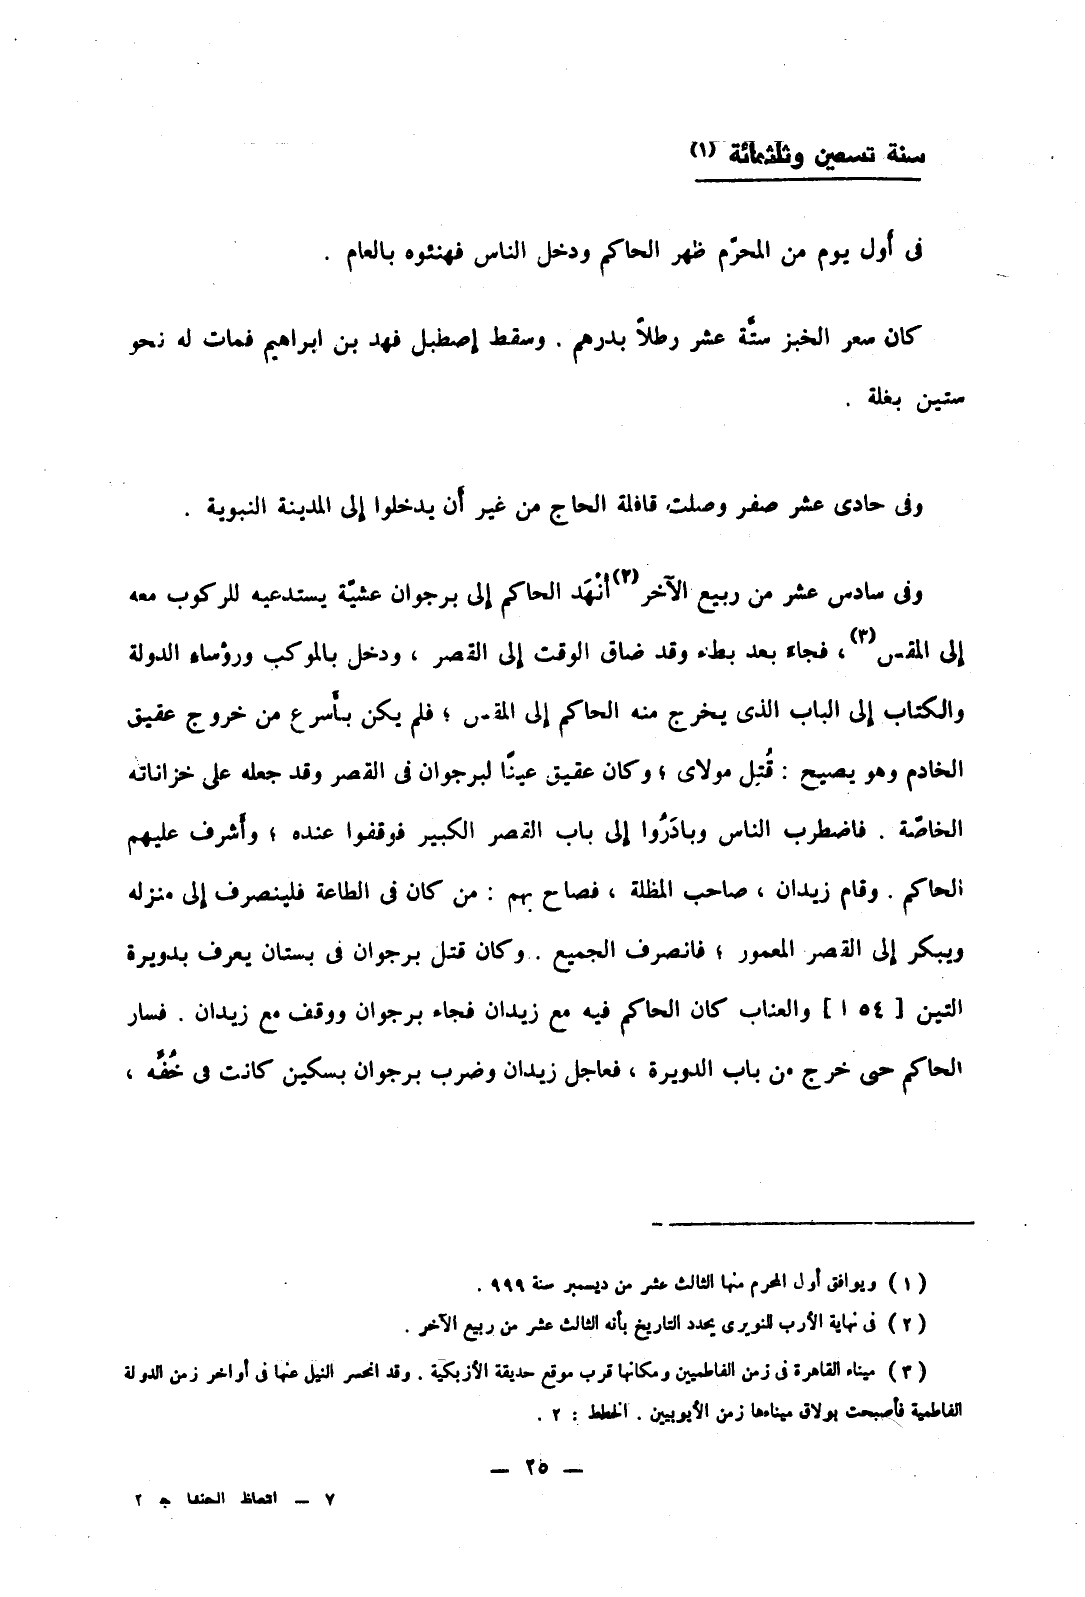 سنة تسعين وثلثمائة (١)
فى أول يوم من المحرّم ظهر الحاكم ودخل الناس فهنئوه بالعام .
كان سعر الخبز ستَّة عشر رطلاً بدرهم . وسقط إصطبل فهد بن ابراهيم فمات له نحو
ستين بغلة .
وفى حادى عشر صفر وصلت قافلة الحاج من غير أن يدخلوا إلى المدينة النبوية .
وفى سادس عشر من ربيع الآخر(٢) أنْهَد الحاكم إلى برجوان عشيّة يستدعيه للركوب معه
إلى المقس(٣) ، فجاء بعد بطء وقد ضاق الوقت إلى القصر ، ودخل بالموكب ورؤساء الدولة
والكتاب إلى الباب الذى يخرج منه الحاكم إلى المقس ؛ فلم يكن بأسرع من خروج عقيق
الخادم وهو يصيح : قُتِل مولاى ؛ وكان عقيق عينًا لبرجوان فى القصر وقد جعله على خزاناته
الخاصّة . فاضطرب الناس وبادَرُوا إلى باب القصر الكبير فوقفوا عنده ؛ وأشرف عليهم
الحاكم . وقام زيدان ، صاحب المظلة ، فصاح بهم : من كان فى الطاعة فلينصرف إلى منزله
ويبكر إلى القصر المعمور ؛ فانصرف الجميع . وكان قتل برجوان فى بستان يعرف بدويرة
التين [ ٥٤ ا ] والعناب كان الحاكم فيه مع زيدان فجاء برجوان ووقف مع زيدان . فسار
الحاكم حتى خرج من باب الدويرة ، فعاجل زيدان وضرب برجوان بسكين كانت فى خُفِّه ،
(١) ويوافق أول المحرم منها الثالث عشر من ديسمبر سنة ٩٩٩ .
(٢) فى نهاية الأرب للنويرى يحدد التاريخ بأنه الثالث عشر من ربيع الآخر .
(٣) ميناء القاهرة فى زمن الفاطميين ومكانها قرب موقع حديقة الأزبكية . وقد انحسر النيل عنها فى أواخر زمن الدولة
الفاطمية فأصبحت بولاق ميناءها زمن الأيوبيين . الخطط : ٢ .
— ٢٥ —
٧ — اتعاظ الحنفا جـ ٢